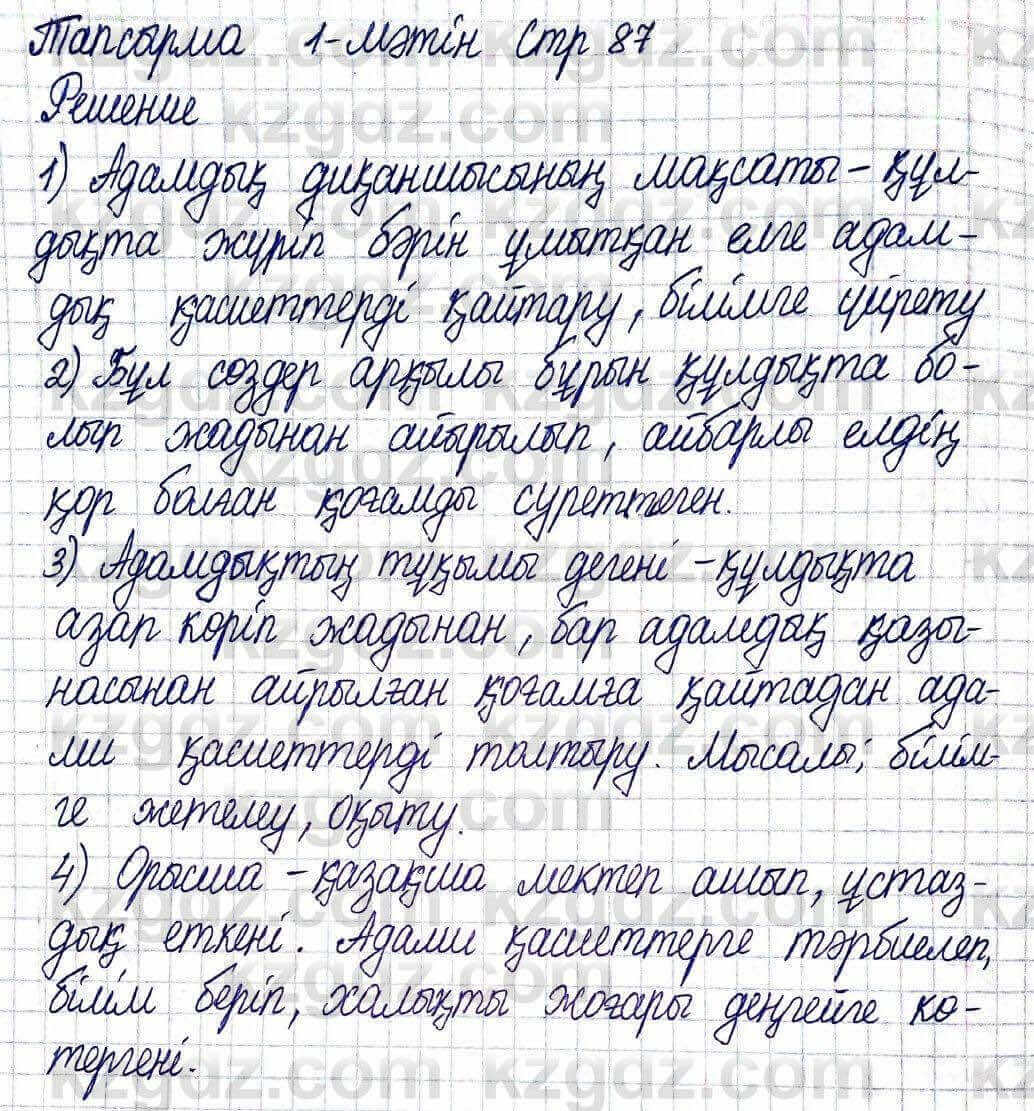 Тапсырма 1-мәтін Стр 87
Решение
1) Адамдық диқаншысының мақсаты - құл-
дықта жүріп бәрін ұмытқан елге адам-
дық қасиеттерді қайтару, білімге үйрету
2) Бұл сөздер арқылы бұрын құлдықта бо-
лып жадынан айырылып, айбарлы елдің
қор болған қоғамды суреттеген.
3) Адамдықтың тұқымы дегені - құлдықта
азап көріп жадынан, бар адамдық қазы-
насынан айрылған қоғамға қайтадан ада-
ми қасиеттерді толтыру. Мысалы; білім-
ге жетелеу, оқыту.
4) Орысша - қазақша мектеп ашып, ұстаз-
дық еткені. Адами қасиеттерге тәрбиелеп,
білім беріп, халықты жоғары деңгейге кө-
тергені.